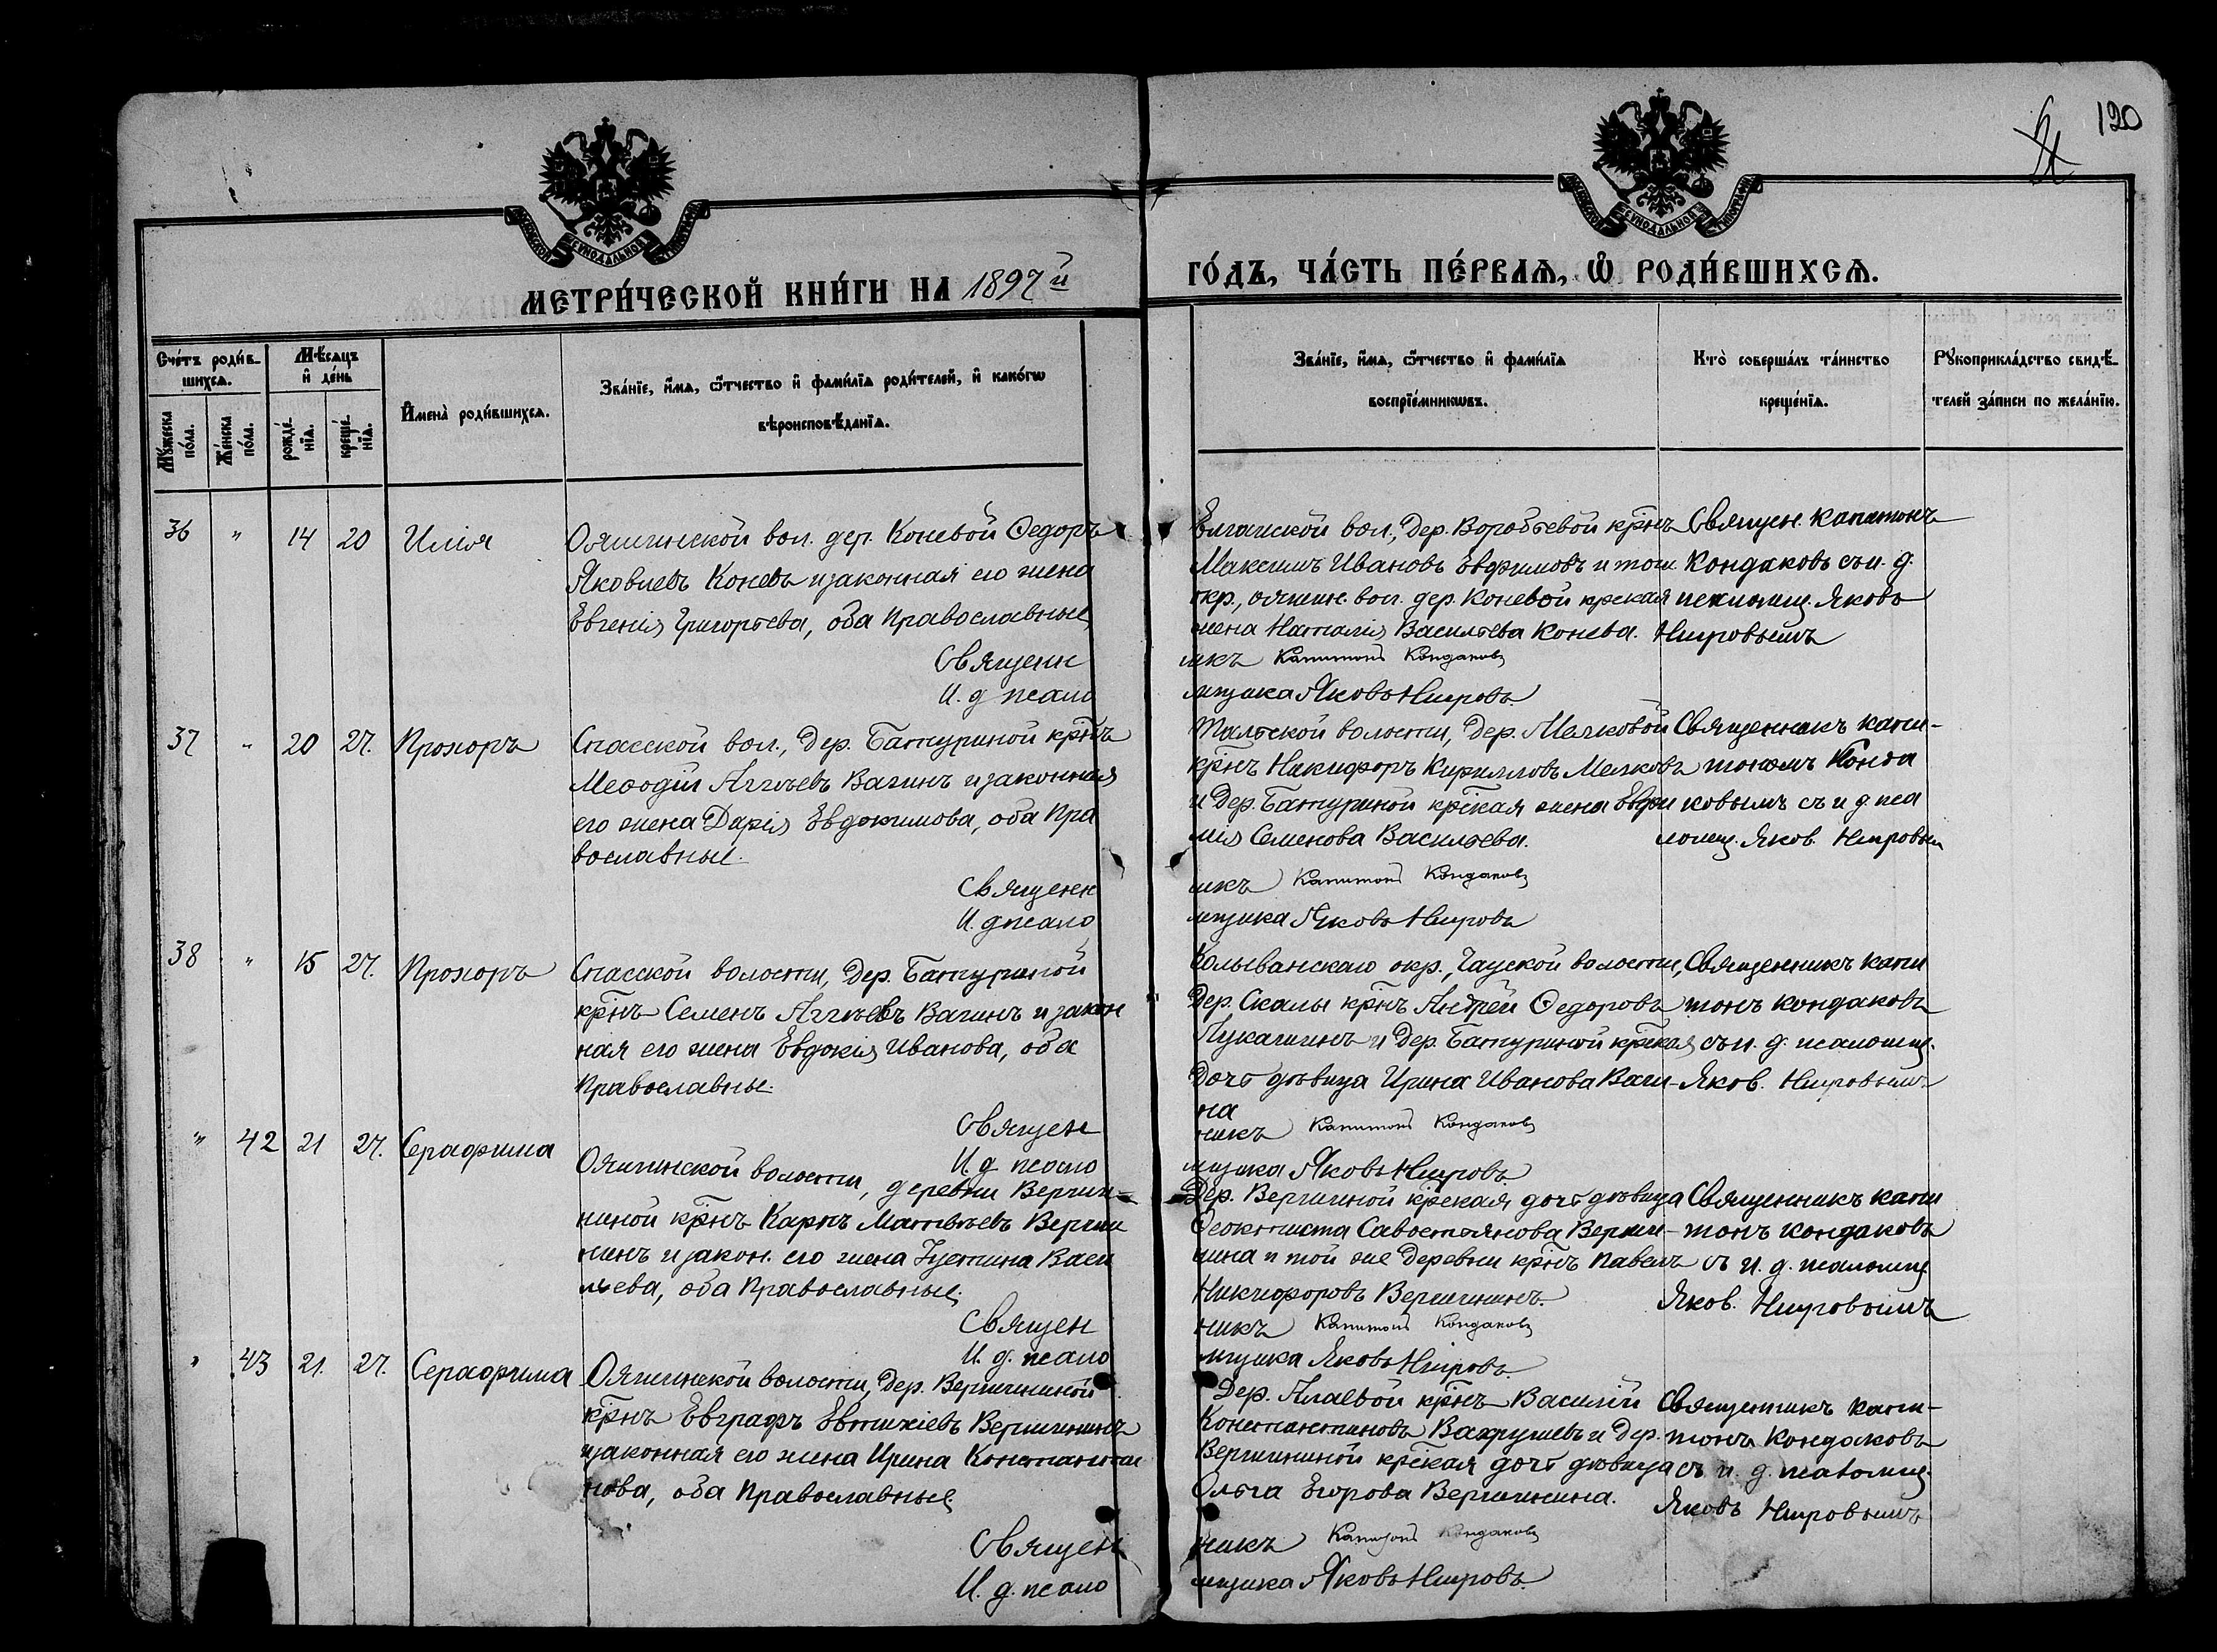 120
МЕТРИ́ЧЕСКОЙ КНИ́ГИ НА 1897й
ГО́ДЪ, ЧА́СТЬ ПЕ́РВАѦ, Ѿ РОДИ́ВШИХСѦ.
Сче́тъ роди́в-
шихсѧ.
Мѣ́сѧцъ
и҆ де́нь
Мꙋ́жеска
по́ла.
Же́нска
по́ла.
рожде́-
нїѧ.
креще́-
нїѧ.
И҆мена̀ роди́вшихсѧ.
Зва́нїе, и҆́мѧ, ѻ҆́тчество и҆ фами́лїѧ роди́телей, и҆ како́гѡ
вѣроисповѣ́данїѧ.
Зва́нїе, и҆́мѧ, ѻ҆́тчество и҆ фами́лїѧ
воспрїе́мникѡвъ.
Кто̀ соверша́лъ та́инство
креще́нїѧ.
Рꙋкоприкла́дство свидѣ́-
телей за́писи по жела́нїю.
36 " 14 20 Илія
Ояшинской вол. дер. Коневой Ѳедоръ
Яковлевъ Коневъ и законная его жена
Евгенія Григорьева, оба Православные
Священ
И. д псало
Елгайской вол., Дер. Воробьевой крнъ
Максимъ Ивановъ Евфимовъ и того
окр., ояшин. вол. дер. Коневой крская
жена Наталія Васильева Конева.
никъ Капитонъ Кондаковъ
мщика Яковъ
Священ. Капитонъ
Кондаковъ съ и. д.
псаломщ. Яковъ
37 " 20 27. Прохоръ
Спасской вол., Дер. Батуриной крнъ
Меѳодій Аггѣевъ Вагинъ и законная
его жена Дарія Евдокимова, оба Пра
вославные.
Священ
И. д псало
Тальской волости, Дер. Мелковой
крнъ Никифоръ Кирилловъ Мелковъ
и Дер. Батуриной крская жена Евфи
мія Семенова Василяева.
никъ Капитонъ Кондаковъ
мщика Яковъ
Священникъ Капи-
тономъ Конда
ковымъ съ и д пса
ломщ. Яков.
38 " 15 27. Прохоръ
Спасской волости, Дер. Батуриной
крнъ Семенъ Аггѣевъ Вагинъ и закон
ная его жена Евдокія Иванова, оба
Православны.
Священ
И. д псало
Колыванскаго окр., Чауской волости,
Дер. Скалы крнъ Андрей Ѳедоровъ
Лукашинъ и Дер. Батуриной крская
дочь дѣвица Ирина Иванова Ваги-
на
никъ Капитонъ Кондаковъ
мщика Яковъ
Священникъ Капи
тонъ Кондаковъ
съ и. д. псаломщ.
Яков.
" 42 21 27. Серафима
Ояшинской волости, деревни Вершин-
ниной крнъ Карпъ Матвѣевъ Верши
нинъ и закон. его жена Устина Васи
льева, оба Православные
Священ
И. д. псало
Дер. Вершиной крская дочь дѣвица
Ѳеоктиста Савостьянова Верши-
нина и той же Деревни крнъ Павелъ
Никифоровъ Вершининъ.
никъ Капитонъ Кондаковъ
мщика Яковъ
Священникъ Капи
тонъ Кондаковъ
съ и. д. псаломщ
Яков.
" 43 21. 27. Серафима
Ояшинской волости, Дер. Вершининой
крнъ Евграфъ Евтихіевъ Вершининъ
и законная его жена Ирина Константи
нова, оба Православные
Священ
И. д. псало
Дер. Алаевой крнъ Василій
Константиновъ Вахрушевъ и Дер.
Вершининой крская дочь дѣвица
Ольга Егорова Вершинина.
никъ Капитонъ Кондаковъ
мщика Яковъ
Священникъ Капи-
тонъ Кондаковъ
съ и. д. псаломщ.
Яковъ